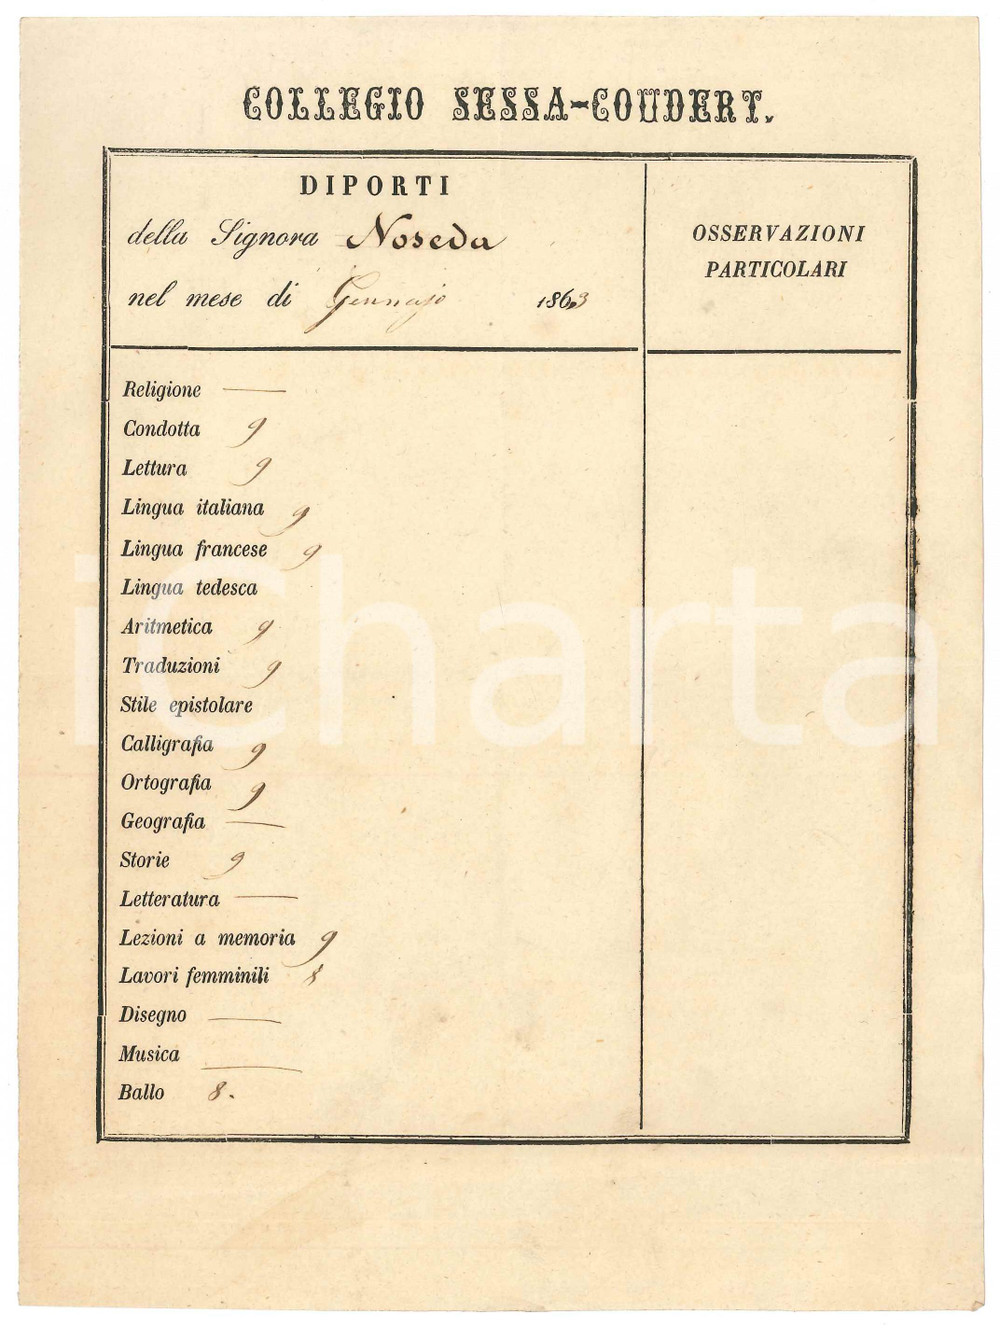 COLLEGIO SESSA-COUDERT.
DIPORTI
della Signora Noseda
nel mese di Gennajo 1863
OSSERVAZIONI
PARTICOLARI
Religione —
Condotta 9
Lettura 9
Lingua italiana 9
Lingua francese 9
Lingua tedesca
Aritmetica 9
Traduzioni 9
Stile epistolare
Calligrafia 9
Ortografia 9
Geografia —
Storie 9
Letteratura —
Lezioni a memoria 9
Lavori femminili 8
Disegno —
Musica —
Ballo 8.
iCharta